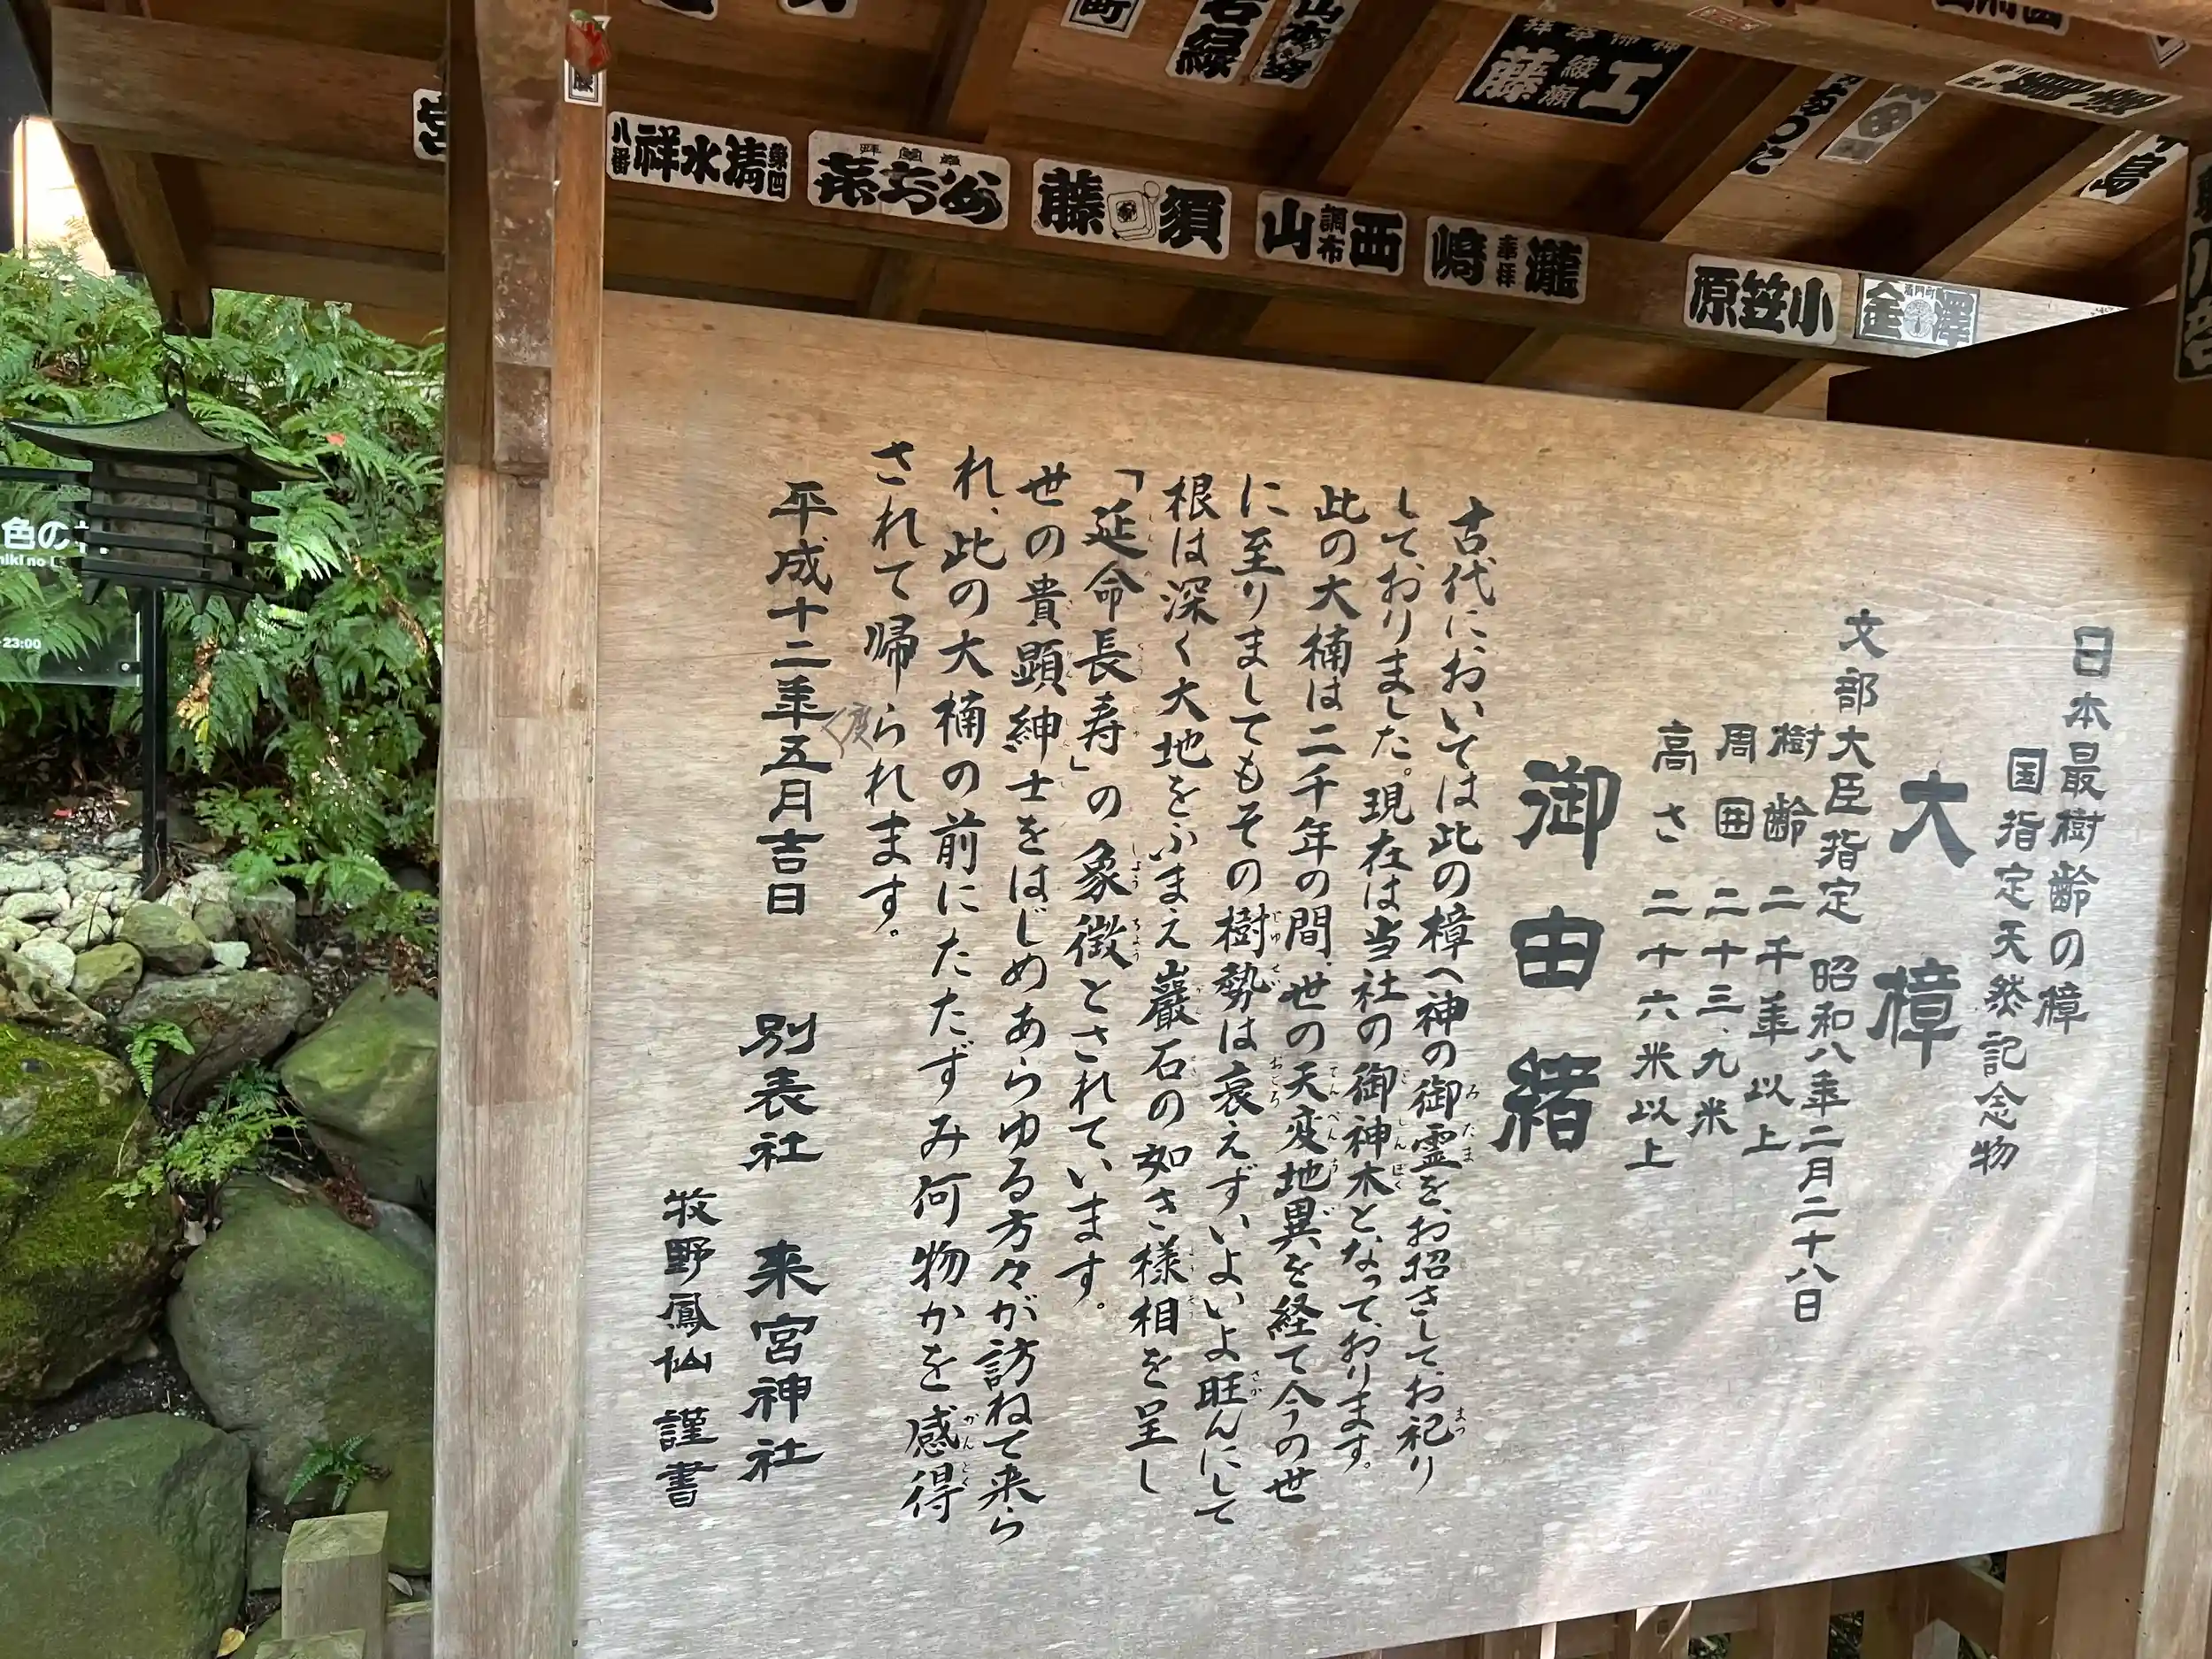 日本最樹齢の樟
国指定天然記念物
大樟
文部大臣指定 昭和八年二月二十八日
樹齢 二千年以上
周囲 二十三、九米
高さ 二十六米以上
御由緒
古代においては此の樟へ神の御霊をお招きしてお祀り
しておりました。現在は当社の御神木となっております。
此の大楠は二千年の間、世の天変地異を経て今の世
に至りましてもその樹勢は衰えずいよいよ旺んにして
根は深く大地をふまえ巖石の如き様相を呈し
「延命長寿」の象徴とされています。
世の貴顕紳士をはじめあらゆる方々が訪ねて来ら
れ、此の大楠の前にたたずみ何物かを感得
されて帰られます。
平成十二年五月吉日
別表社 来宮神社
牧野鳳仙 謹書
八番 祥水清 第四
藤 須
山 調布 西
崎 奉拝 瀧
原笠小
金 澤
藤 綾瀬 工
宮
町
色の
niki no
23:00